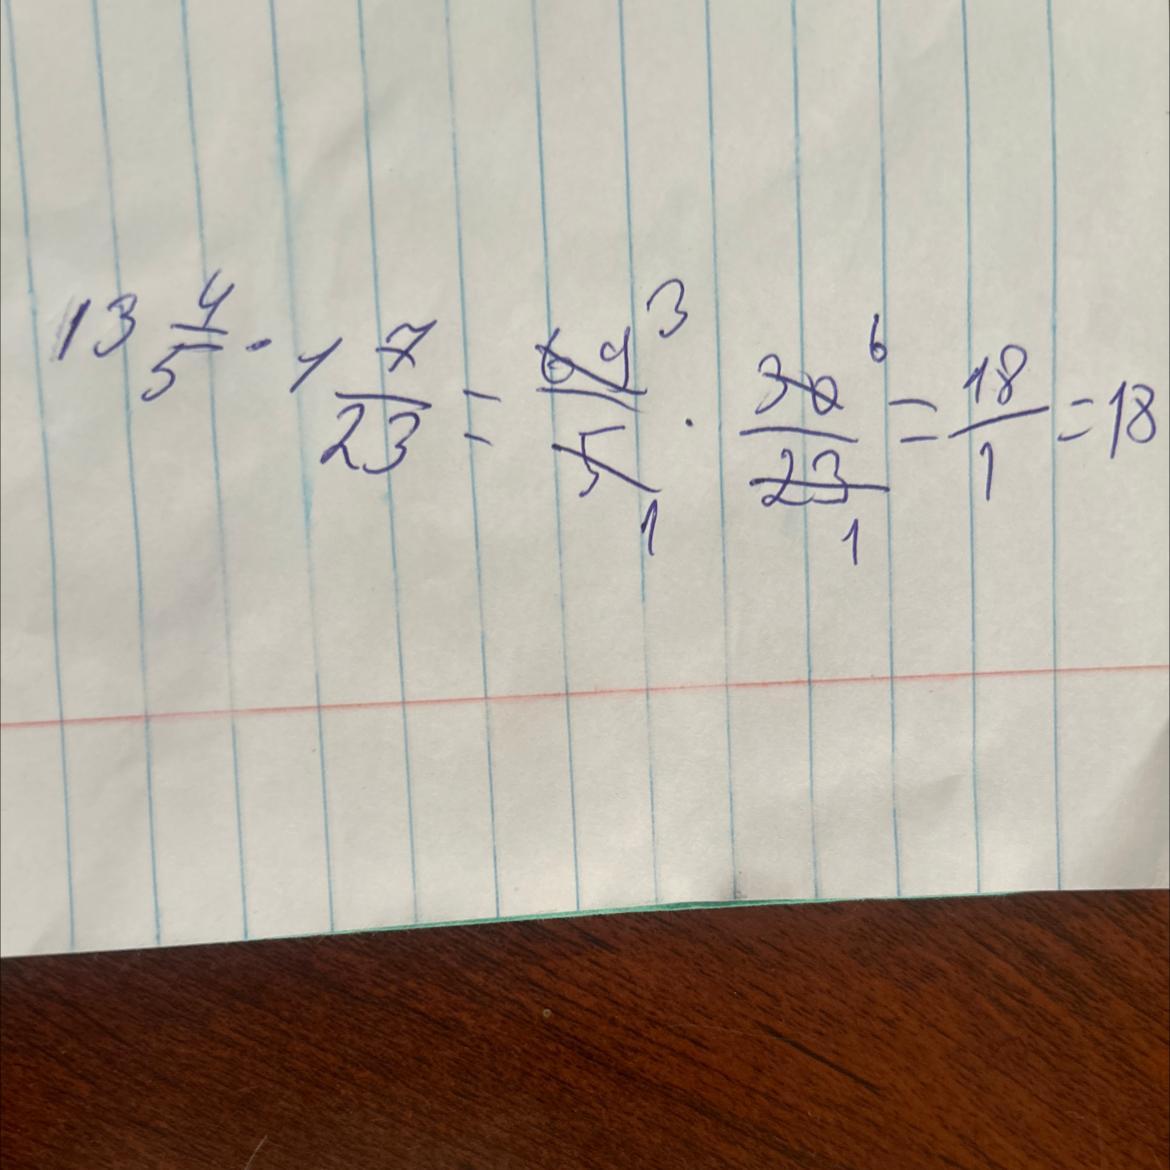 13 4/5 · 1 7/23 = 69/5 3 1 · 30/23 6 1 = 18/1 = 18